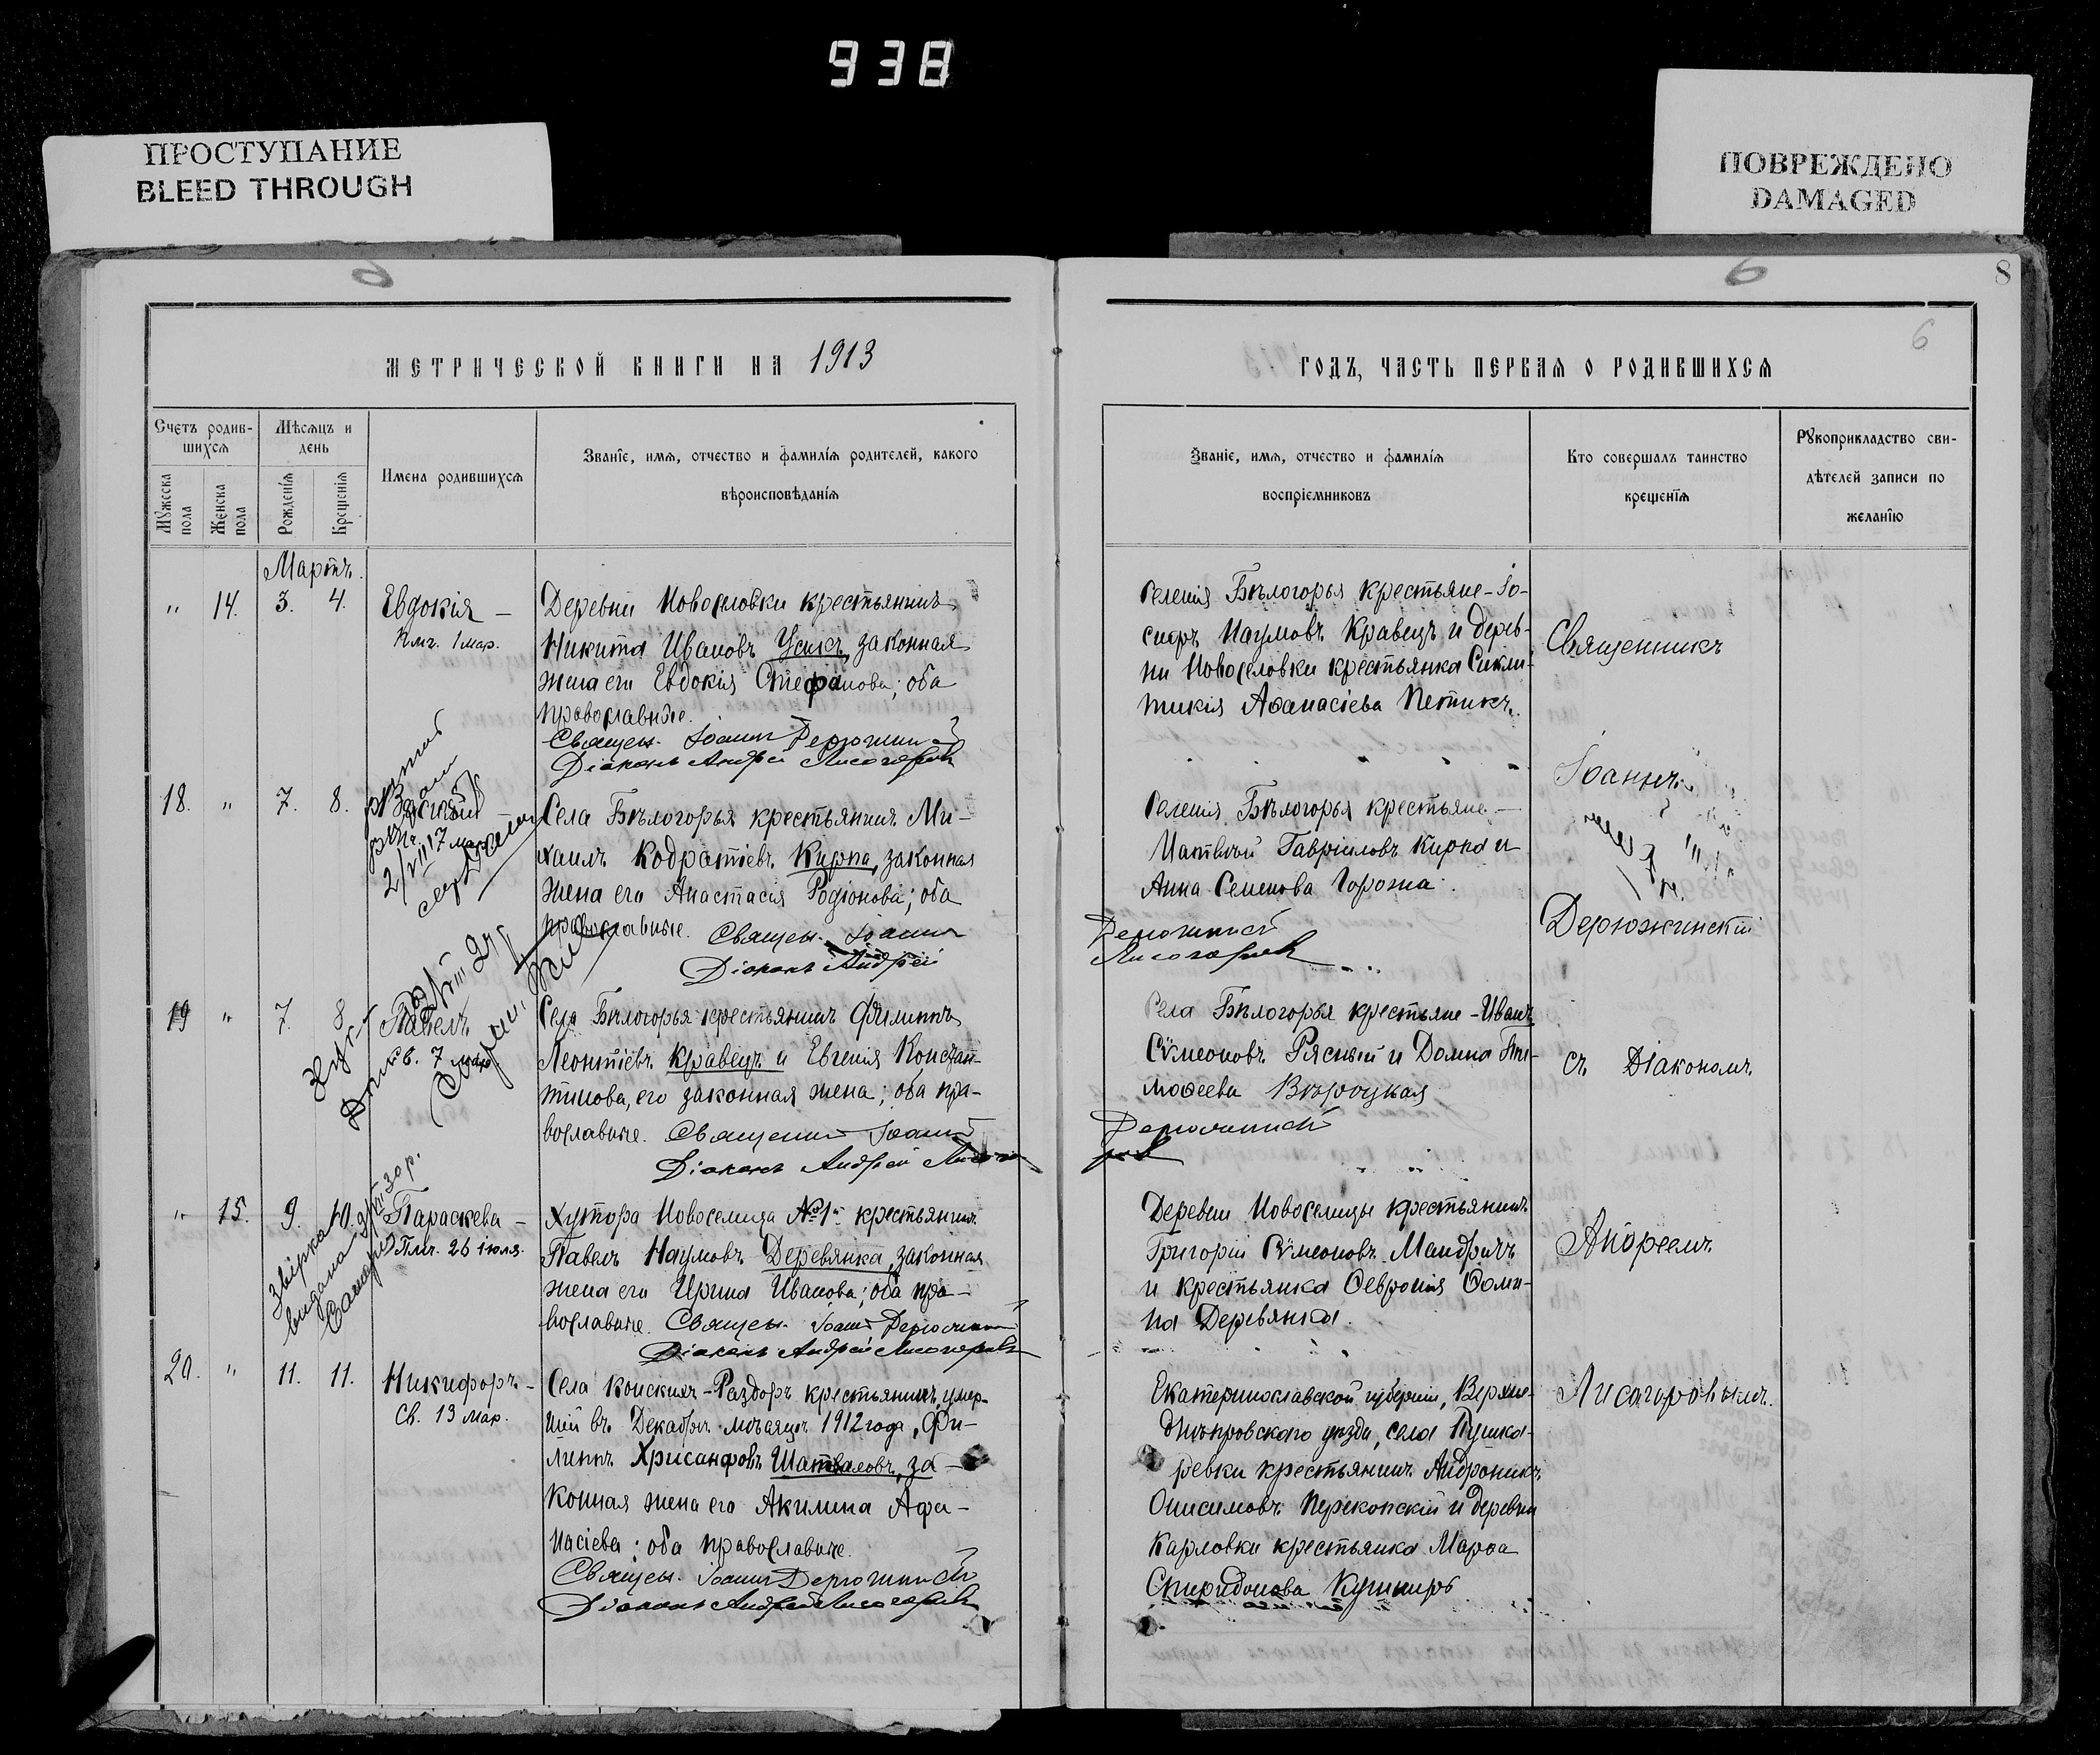 938
ПРОСТУПАНИЕ
BLEED THROUGH
ПОВРЕЖДЕНО
DAMAGED
6
6
8
6
МЕТРИЧЕСКОЙ КНИГИ НА 1913
ГОДЪ, ЧАСТЬ ПЕРВАЯ О РОДИВШИХСЯ
Счетъ родив-
шихся
Мужеска пола
Женска пола
Мѣсяцъ и
день
Рожденія
Крещенія
Имена родившихся
Званіе, имя, отчество и фамилія родителей, какого
вѣроисповѣданія
Званіе, имя, отчество и фамилія
воспріемниковъ
Кто совершалъ таинство
крещенія
Рукоприкладство сви-
дѣтелей записи по
желанію
Мартъ.
" 14. 3. 4. Евдокія —
Кмч. 1 мар.
Деревни Новоселовки крестьянинъ
Никита Ивановъ Усикъ, законная
жена его Евдокія Стефанова; оба
православные.
Священ. Іоаннъ Дерюжинскій
Діаконъ Андрей Лисогоровъ
Селенія Бѣлогорья крестьяне - Іо-
сифъ Наумовъ Кравецъ и дерев-
ни Новоселовки крестьянка Сикли-
тикія Аѳанасіева Петикъ.
18. " 7. 8.
17 мар.
Села Бѣлогорья крестьянинъ Ми-
хаилъ Кодратіевъ Кирпа, законная
жена его Анастасія Родіонова; оба
православные. Священ. Іоаннъ
Діаконъ Андрей
Селенія Бѣлогорья крестьяне —
Матвѣй Гавріиловъ Кирпа и
Анна Семенова Горожа.
Дерюжинскій
Лисогоровъ
19 " 7. 8 Павелъ
7 мар
Села Бѣлогорья крестьянинъ Филиппъ
Леонтіевъ Кравецъ и Евгенія Констан-
тинова, его законная жена; оба пра-
вославные. Священникъ Іоаннъ
Діаконъ Андрей Лисого
Села Бѣлогорья крестьяне - Иванъ
Сѵмеоновъ Рясный и Домна Ти-
моѳеева
Дерюжинскій
ровъ
" 15. 9. 10. Параскева —
Плч. 26 іюля.
Звірка
видана
Хутора Новоселица №1й крестьянинъ
Павелъ Наумовъ Деревянка, законная
жена его Ирина Иванова; оба пра-
вославные. Священ. Іоаннъ Дерюжинскій
Діаконъ Андрей Лисогоровъ
Деревни Новоселицы крестьянинъ
Григорій Сѵмеоновъ Мандричъ
и крестьянка Ѳевронія Ѳоми-
на Деревянка.
20. " 11. 11. Никифоръ —
Св. 13 мар.
Села Конскихъ-Раздоръ крестьянинъ, умер-
шій въ Декабрѣ мѣсяцѣ 1912 года, Фи-
липпъ Хрисанфовъ Шаповаловъ, за-
конная жена его Акилина Афа-
насіева; оба православные.
Священ. Іоаннъ Дерюжинскій
Діаконъ Андрей Лисогоровъ
Екатеринославской губерніи, Верхне-
днѣпровскаго уѣзда, села Пушка-
ревки крестьянинъ Андроникъ
Онисимовъ Перекопскій и деревни
Карловки крестьянка Марѳа
Спиридонова Кушниръ
Священникъ
Іоаннъ
Дерюжинскій
съ Діакономъ
Андреемъ
Лисогоровымъ.